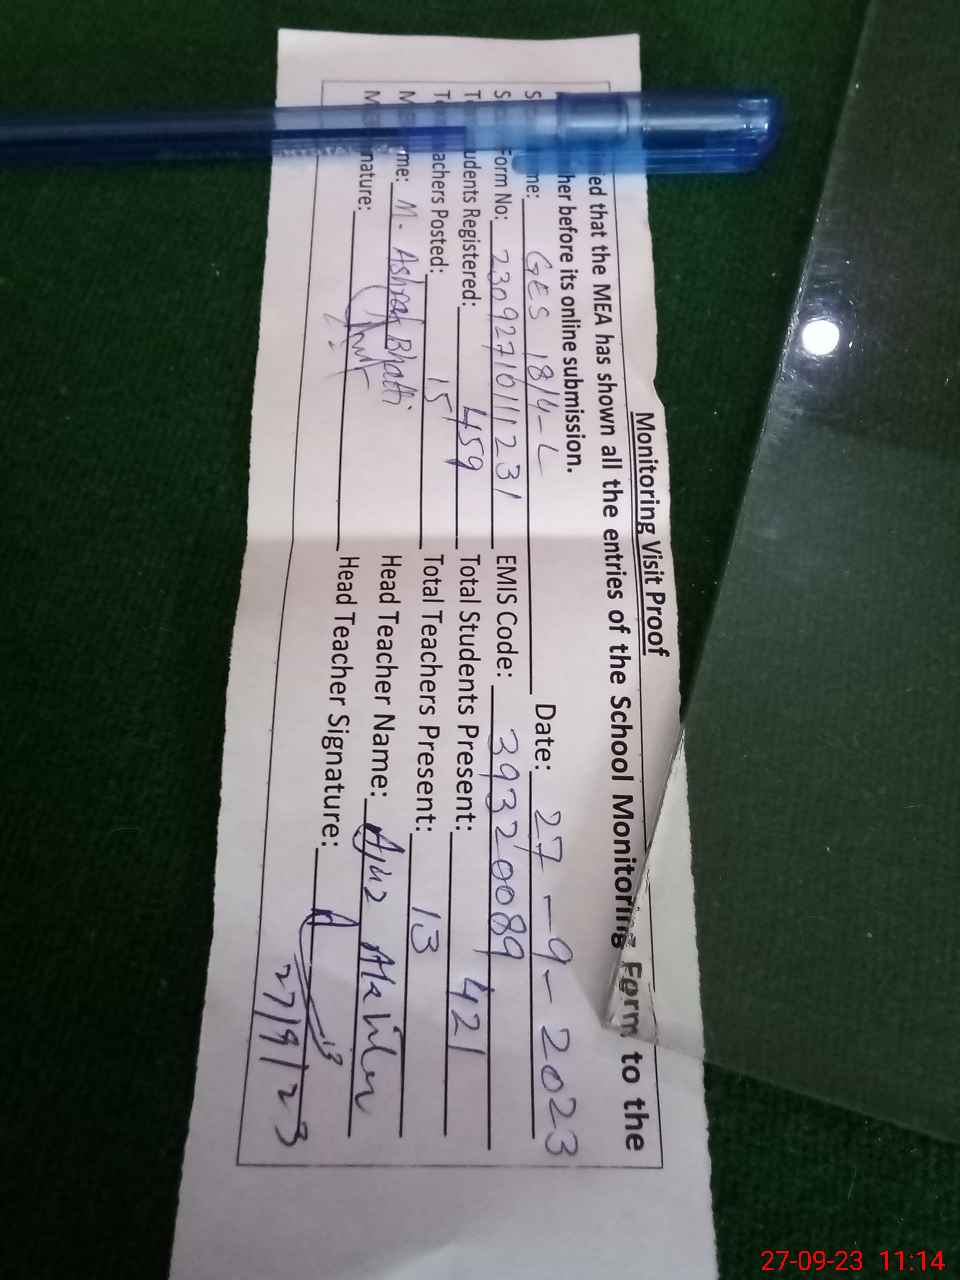 Monitoring Visit Proof
ed that the MEA has shown all the entries of the School Monitoring Form to the
her before its online submission.
me: GES 18/4-L Date: 27-9-2023
Form No: 2309271011231 EMIS Code: 39320089
udents Registered: 459 Total Students Present: 421
achers Posted: 15 Total Teachers Present: 13
me: M. Ashraf Bhatti Head Teacher Name:
nature: Head Teacher Signature:
27/9/23
27-09-23 11:14